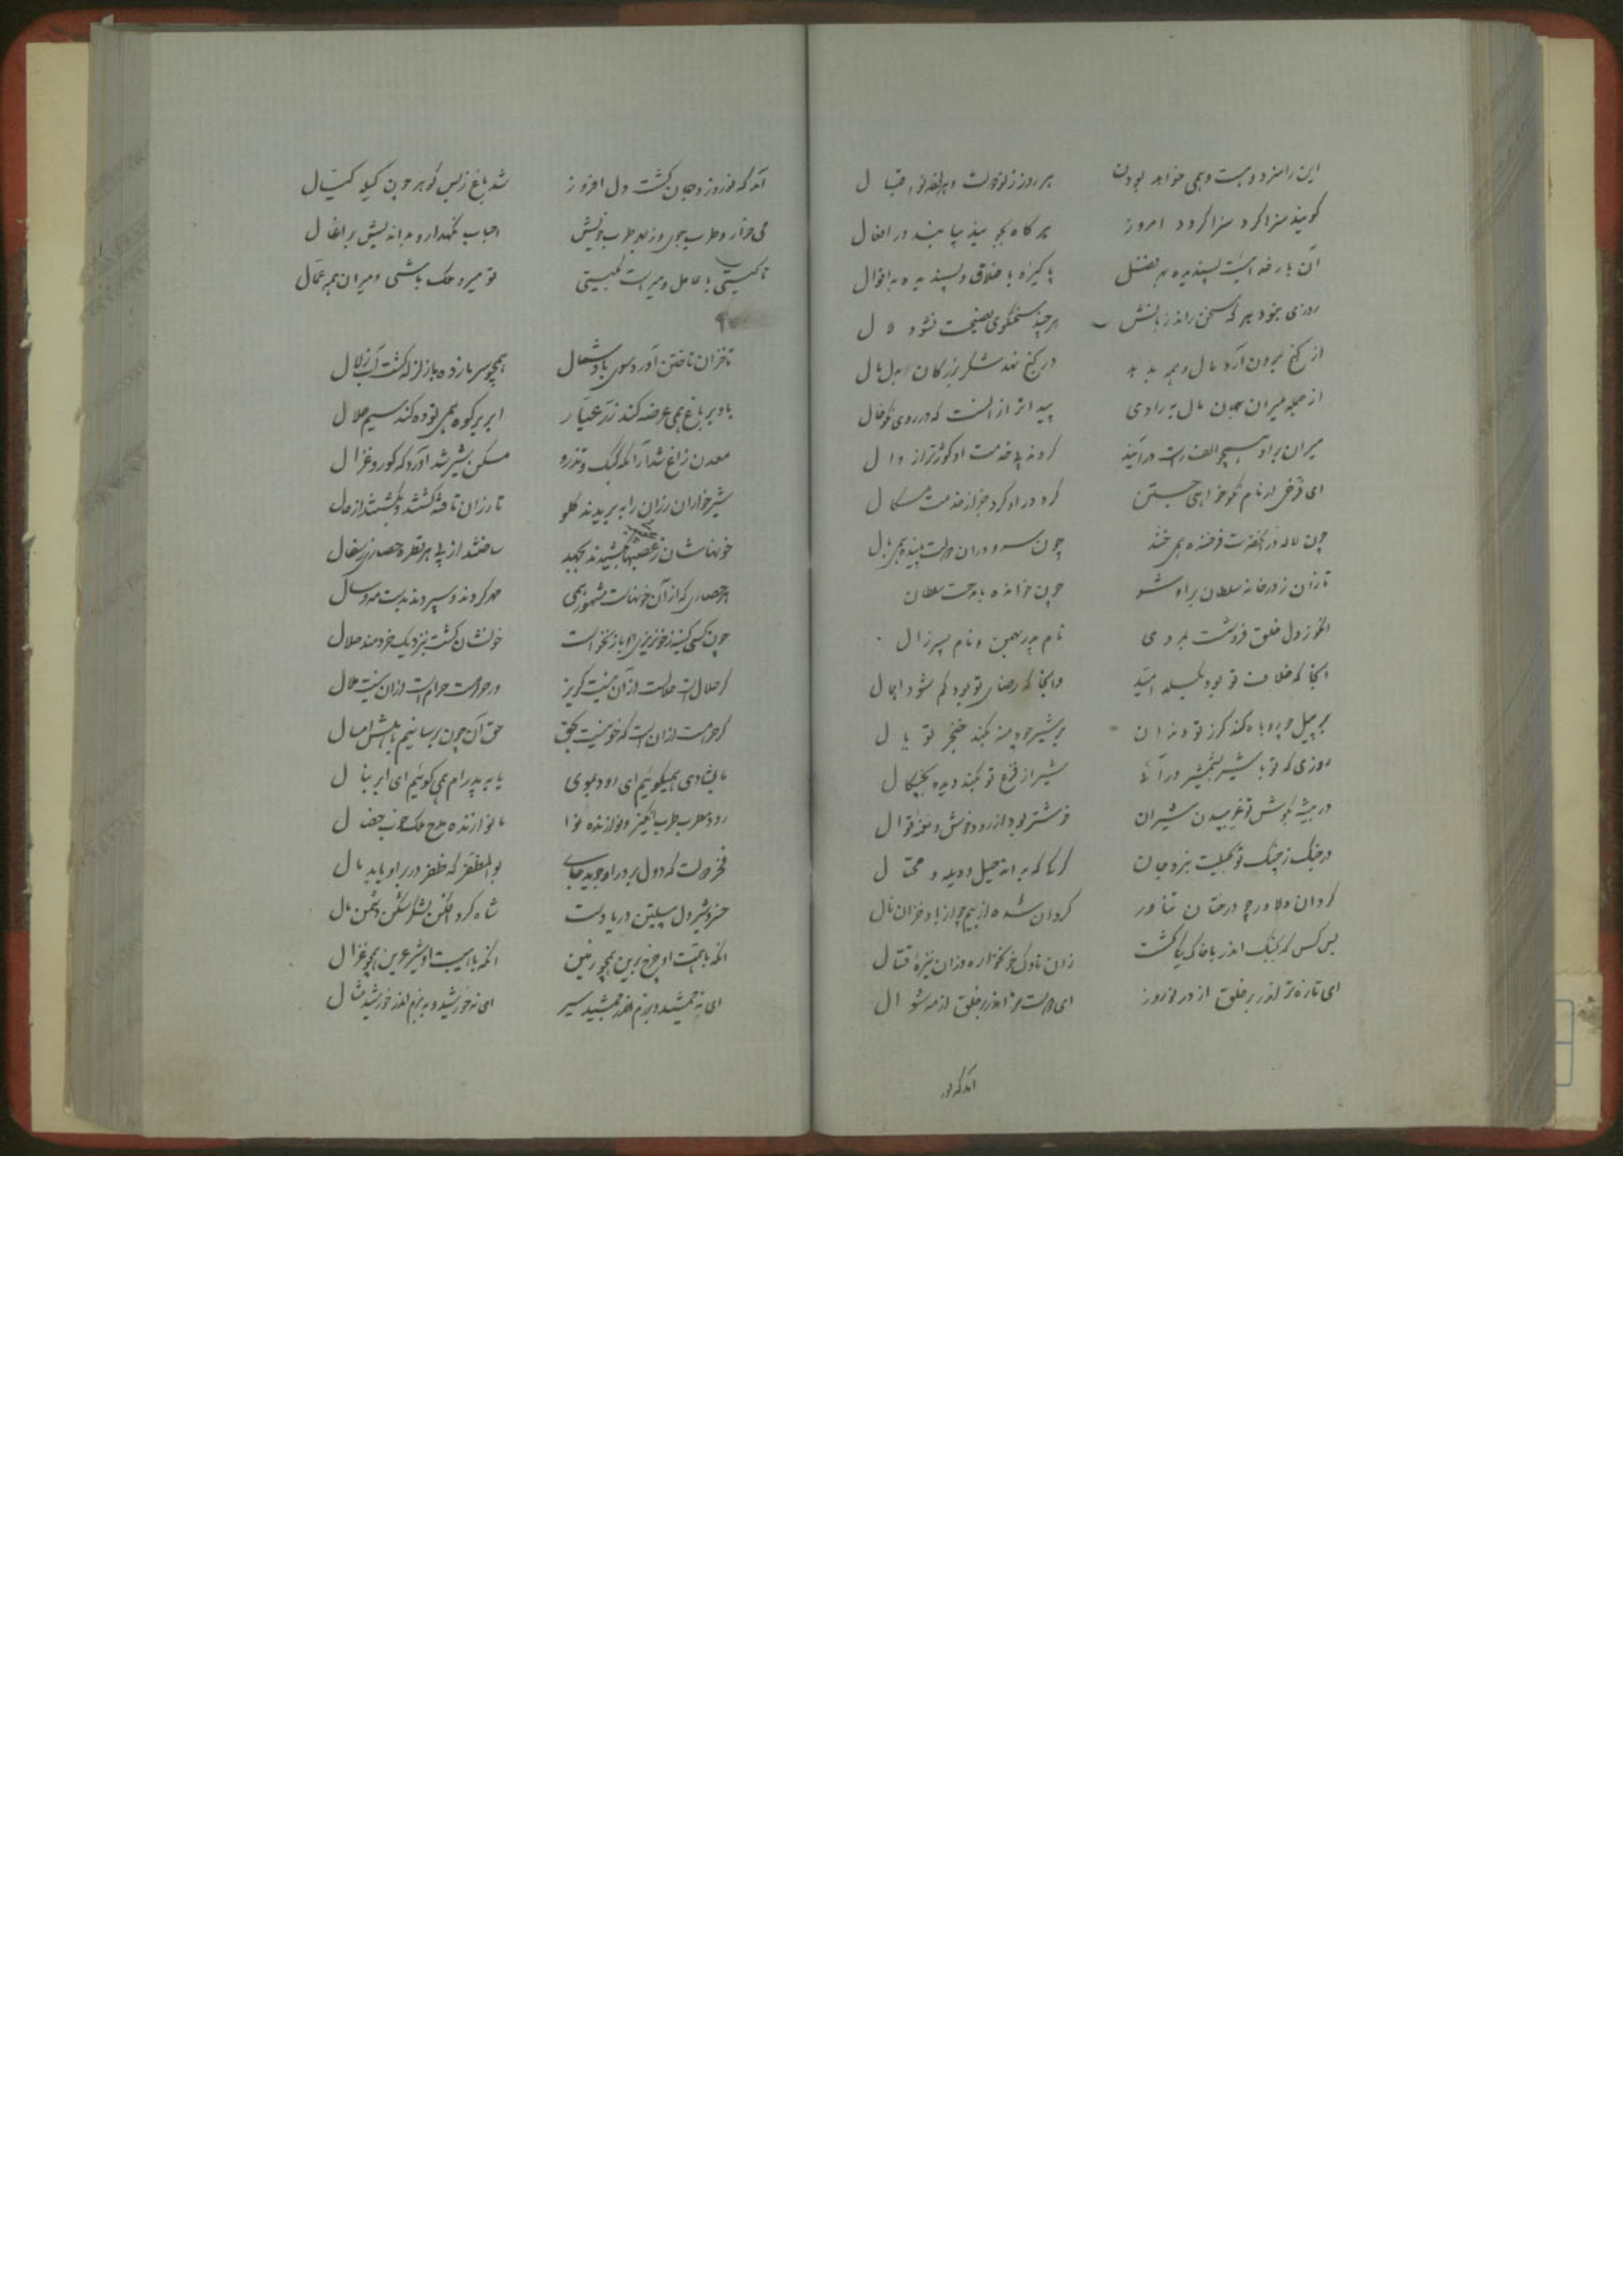 این را سزد و هست و همی خواهد بودن هر روز ز نو دولت و هر لحظه نو اقبال
گویند سزا کرد سزا کرد امروز هر گاه بجویند بیابند در افعال
آن بار خدائیست پسندیده بهر فضل پاکیزه باخلاق و پسندیده باقوال
روزی بخود هر که سخن راند زبانش هر چند سخنگوی فصیحست شود لال
از گنج برون آرد مال و همه بدهد در گنج نهد شکر بزرگان بدل مال
از جمله میران جهان مال به رادی پیداتر از آنست که در روی نکو خال
میران براو همچو الف راست در آیند گردند به خدمت او کوژتر از دال
ای فرخی ار نام نکو خواهی جستن گرد در او گرد جز از خدمت مسگال
چون لاله در آن حضرت فرخنده همی خند چون سرو در آن دولت پاینده همی بال
تازان ز در خانه سلطان براو شو چون خوانده به مدحت سلطان
نام پدر بهمن و نام پسر زال
آنجا که خلاف تو بود بگسلد امید وانجا که رضای تو بود گم شود آجال
بر پیل چو روباه کند گرز تو دندان بر شیر چو کند خنجر تو یال
روزی که تو با شیر بشمشیر در آئی شیر از فزع تو بکند دیده بچنگال
در بیشه بگوش تو غریویدن شیران خوشتر بود از رود خوش و نغمه قوال
در جنگ ز چنگ تو بحیلت نبرد جان گرگی که براند حیل و حیله و محتال
گردان دلاور چو درختان تناور لرزان شده از بیم چو از باد خزان نال
بس کس که بجنگ اندر با خاک یکی گشت زان ناوک خونخواره وزان نیزه قتال
ای تازه‌تر اندر بر خلق از در نوروز ای دولت تو اندر بر خلق از مه شوال
آمد که نو
آمد که نوروز و جهان گشت دل افروز شد باغ ز بس گوهر چون کیله کیال
می خوار و طرب جوی و ز بهر طرب خویش احباب نگهدار و بداندیش بر اغال
تا گیتی با عامل و میر است بگیتی تو میر و ملک باشی و میران همه عمال
تا خزان تاختن آورد سوی باد شمال همچو سرمازده با زلزله گشت آب زلال
باد بر باغ همی عرضه کند زر عیار ابر بر کوه همی توده کند سیم حلال
معدن زاغ شد آرامگه کبک و تذرو مسکن شیر شد آوردگه گور و غزال
شیرخواران رزان را ببریدند گلو تا رزان تافته گشتند و بگشتند از حال
خونهاشان ز عصبها بکشیدند بجهد ساختند از پی هر قطره حصاری ز سفال
هر حصاری که از آن خونها شد مشهور همی مهر کردند و سپردند بدست مه و سال
چون کسی کینه ز خونریزی او باز نخواست خونشان گشت بنزدیک خردمند حلال
گر حلال است حلالست از آن نیست گریز ور حرامست حرامست از آن نیست ملال
گر حرامست از آنست که خونیست بحق حق آن چون برسانیم ز ما گشت حلال
ما بشادی همیگوئیم ای رود بموی ما به پدرام همی گوئیم ای ابر بنال
رود مطرب طرب انگیز و نوازنده نوا ما نوازنده مدح ملک خوب خصال
فخر دولت که دول بر در او جوید جای بوالمظفر که ظفر در بر او یابد مال
خسرو شیردل پیلتن دریا دست شاه گرد افکن لشکر شکن دشمن مال
آنکه با همت او چرخ برین همچو زمین آنکه با هیبت او شیر عرین همچو غزال
ای نه جمشید و ببزم اندر جمشید سیر ای نه خورشید و ببزم اندر خورشید مثال